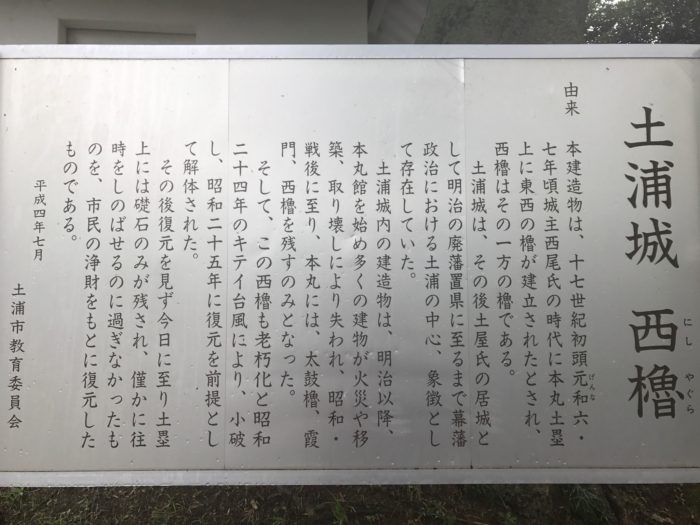 土浦城 西櫓
にし やぐら
由来
本建造物は、十七世紀初頭元和六・
げんな
七年頃城主西尾氏の時代に本丸土塁
上に東西の櫓が建立されたとされ、
西櫓はその一方の櫓である。
土浦城は、その後土屋氏の居城と
して明治の廃藩置県に至るまで幕藩
政治における土浦の中心、象徴とし
て存在していた。
土浦城内の建造物は、明治以降、
本丸館を始め多くの建物が火災や移
築、取り壊しにより失われ、昭和・
戦後に至り、本丸には、太鼓櫓、霞
門、西櫓を残すのみとなった。
そして、この西櫓も老朽化と昭和
二十四年のキテイ台風により、小破
し、昭和二十五年に復元を前提とし
て解体された。
その後復元を見ず今日に至り土塁
上には礎石のみが残され、僅かに往
時をしのばせるのに過ぎなかったも
のを、市民の浄財をもとに復元した
ものである。
平成四年七月
土浦市教育委員会